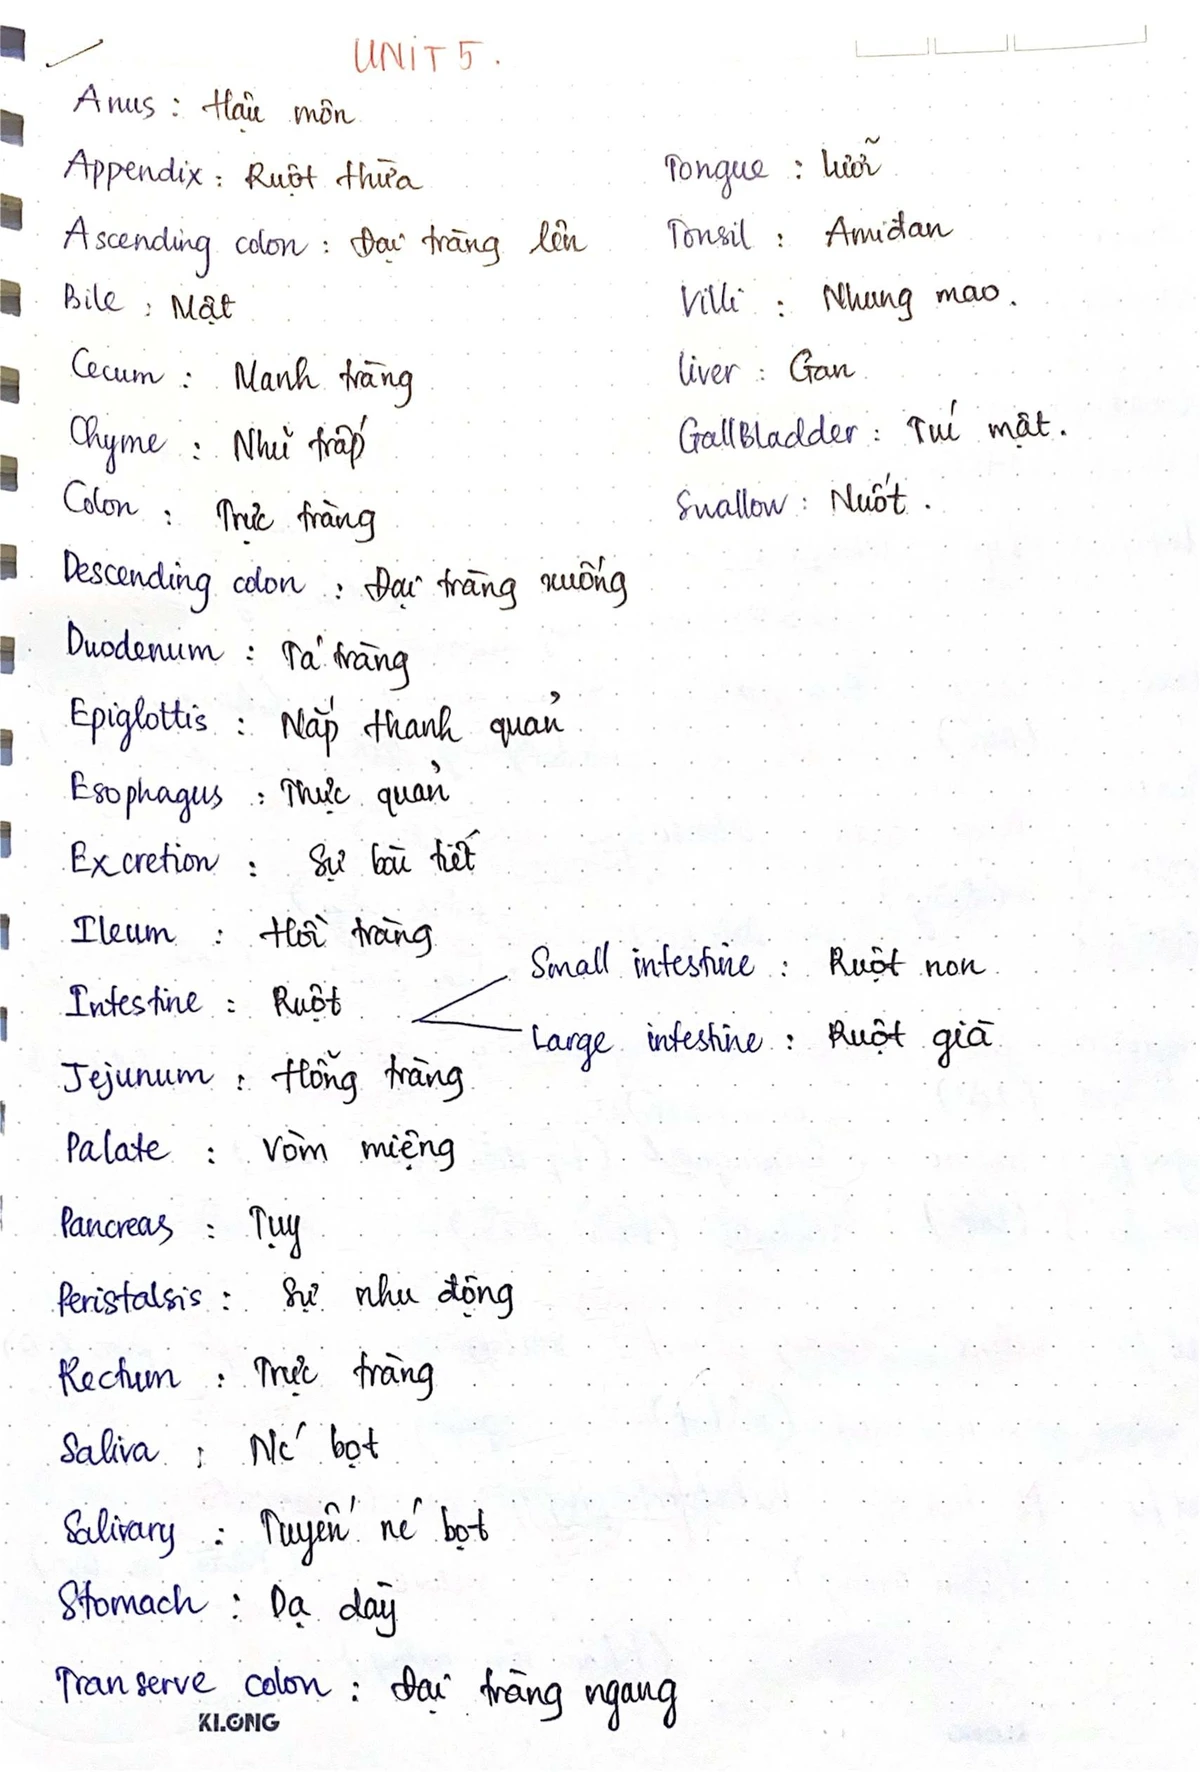 UNIT 5.
Anus : Hậu môn
Appendix : Ruột thừa
Ascending colon : Đại tràng lên
Bile : Mật
Cecum : Manh tràng
Chyme : Nhũ trấp
Colon : Trực tràng
Descending colon : Đại tràng xuống
Duodenum : Tá tràng
Epiglottis : Nắp thanh quản
Esophagus : Thực quản
Excretion : Sự bài tiết
Ileum : Hồi tràng
Intestine : Ruột
Small intestine : Ruột non
Large intestine : Ruột già
Jejunum : Hỗng tràng
Palate : Vòm miệng
Pancreas : Tụy
Peristalsis : Sự nhu động
Rectum : Trực tràng
Saliva : Nć bọt
Salivary : Tuyến nć bọt
Stomach : Dạ dày
Transerve colon : Đại tràng ngang
Tongue : lưỡi
Tonsil : Amiđan
Villi : Nhung mao.
liver : Gan
GallBladder : Túi mật.
Swallow : Nuốt.
KLONG